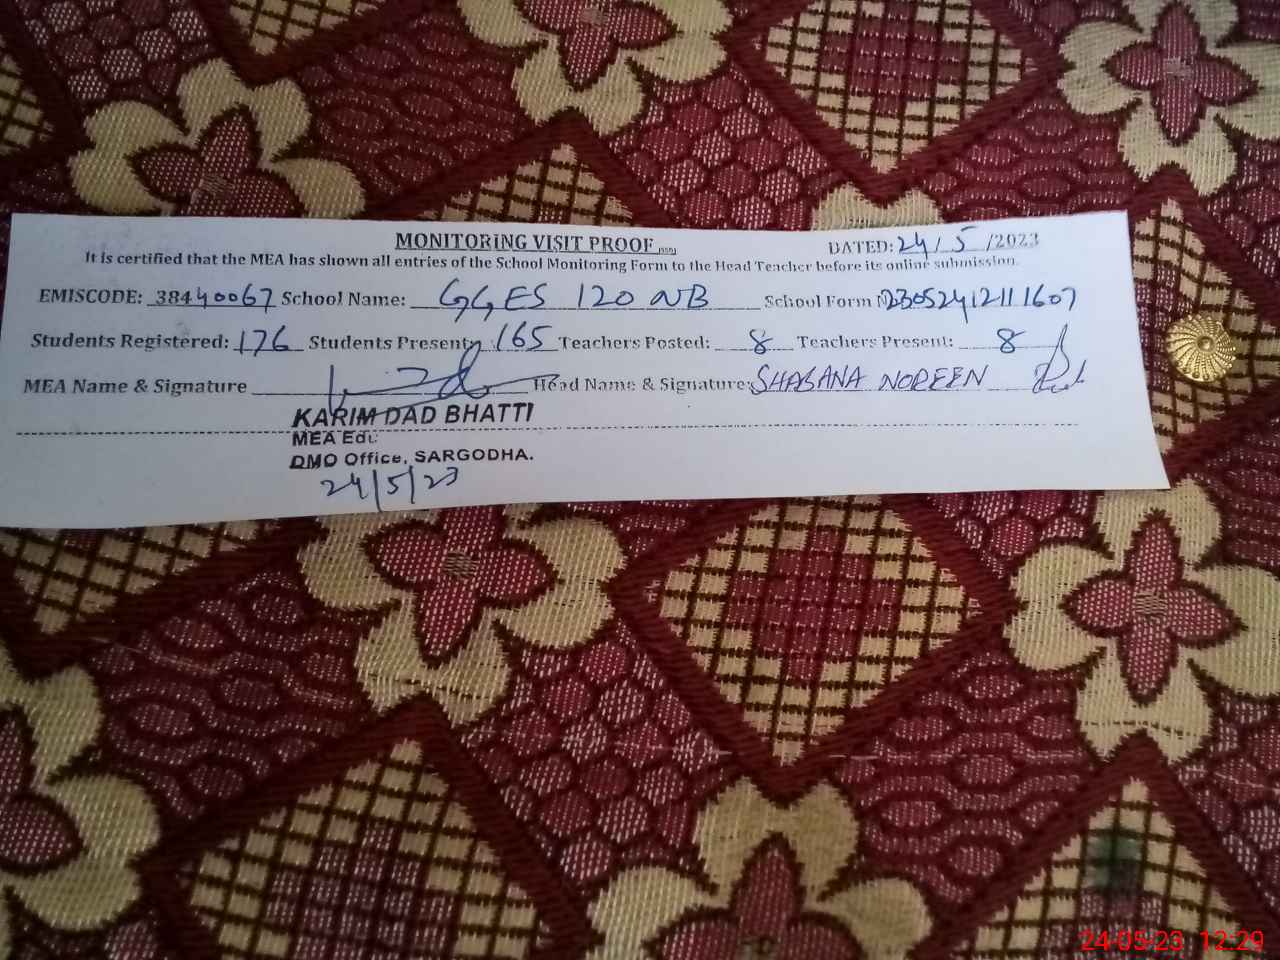 MONITORING VISIT PROOF
DATED: 24/5/2023
It is certified that the MEA has shown all entries of the School Monitoring Form to the Head Teacher before its online submission.
EMISCODE: 38440067 School Name: GGES 120 NB School Form N 23052412111607
Students Registered: 176 Students Present: 165 Teachers Posted: 8 Teachers Present: 8
MEA Name & Signature Head Name & Signature: SHABANA NOREEN
KARIM DAD BHATTI
MEA Edu:
DMO Office, SARGODHA.
24/5/23
24-05-23 12:29